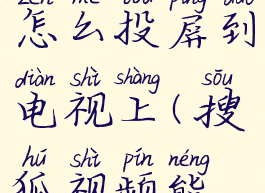 zěn me tóu píng dào
怎么投屏到
diàn shì shàng sōu
电视上(搜
hú shì pín néng
狐视频能